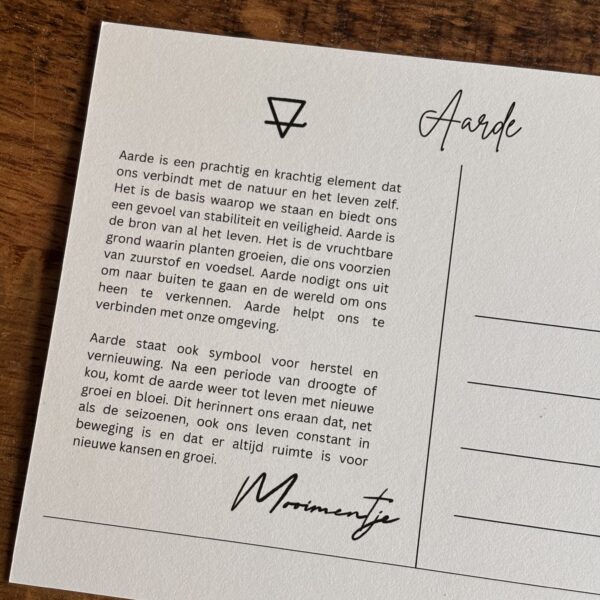 Aarde
Aarde is een prachtig en krachtig element dat
ons verbindt met de natuur en het leven zelf.
Het is de basis waarop we staan en biedt ons
een gevoel van stabiliteit en veiligheid. Aarde is
de bron van al het leven. Het is de vruchtbare
grond waarin planten groeien, die ons voorzien
van zuurstof en voedsel. Aarde nodigt ons uit
om naar buiten te gaan en de wereld om ons
heen te verkennen. Aarde helpt ons te
verbinden met onze omgeving.
Aarde staat ook symbool voor herstel en
vernieuwing. Na een periode van droogte of
kou, komt de aarde weer tot leven met nieuwe
groei en bloei. Dit herinnert ons eraan dat, net
als de seizoenen, ook ons leven constant in
beweging is en dat er altijd ruimte is voor
nieuwe kansen en groei.
Mooimentje